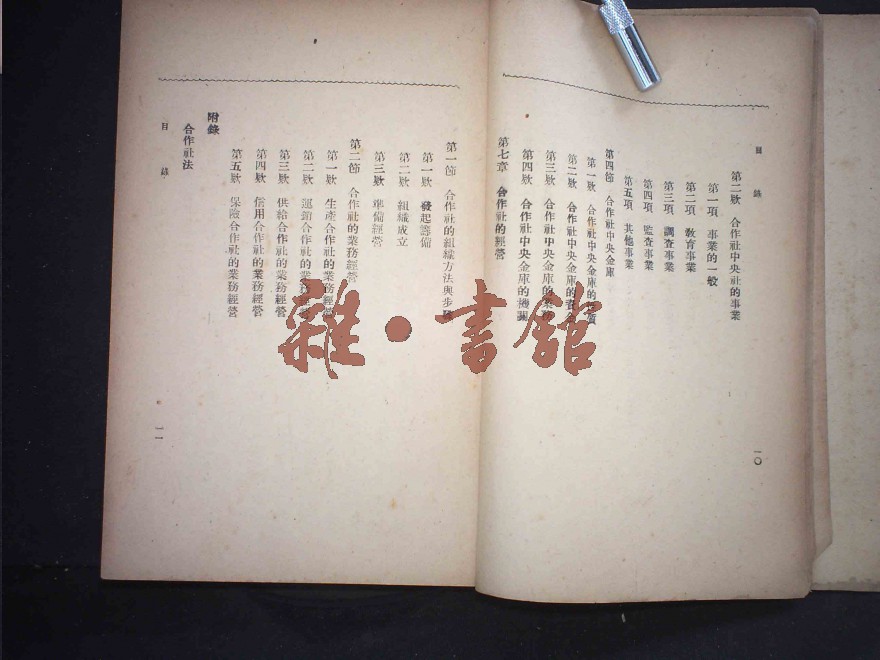 目錄
一〇
第二欵 合作社中央社的事業
第一項 事業的一般
第二項 教育事業
第三項 調查事業
第四項 監查事業
第五項 其他事業
第四節 合作社中央金庫
第一欵 合作社中央金庫的性質
第二欵 合作社中央金庫的資金
第三欵 合作社中央金庫的業務
第四欵 合作社中央金庫的機關
第七章 合作社的經營
第一節 合作社的組織方法與步驟
第一欵 發起籌備
第二欵 組織成立
第三欵 準備經營
第二節 合作社的業務經營
第一欵 生產合作社的業務經營
第二欵 運銷合作社的業務經營
第三欵 供給合作社的業務經營
第四欵 信用合作社的業務經營
第五欵 保險合作社的業務經營
附錄
合作社法
目錄
一一
雜·書館